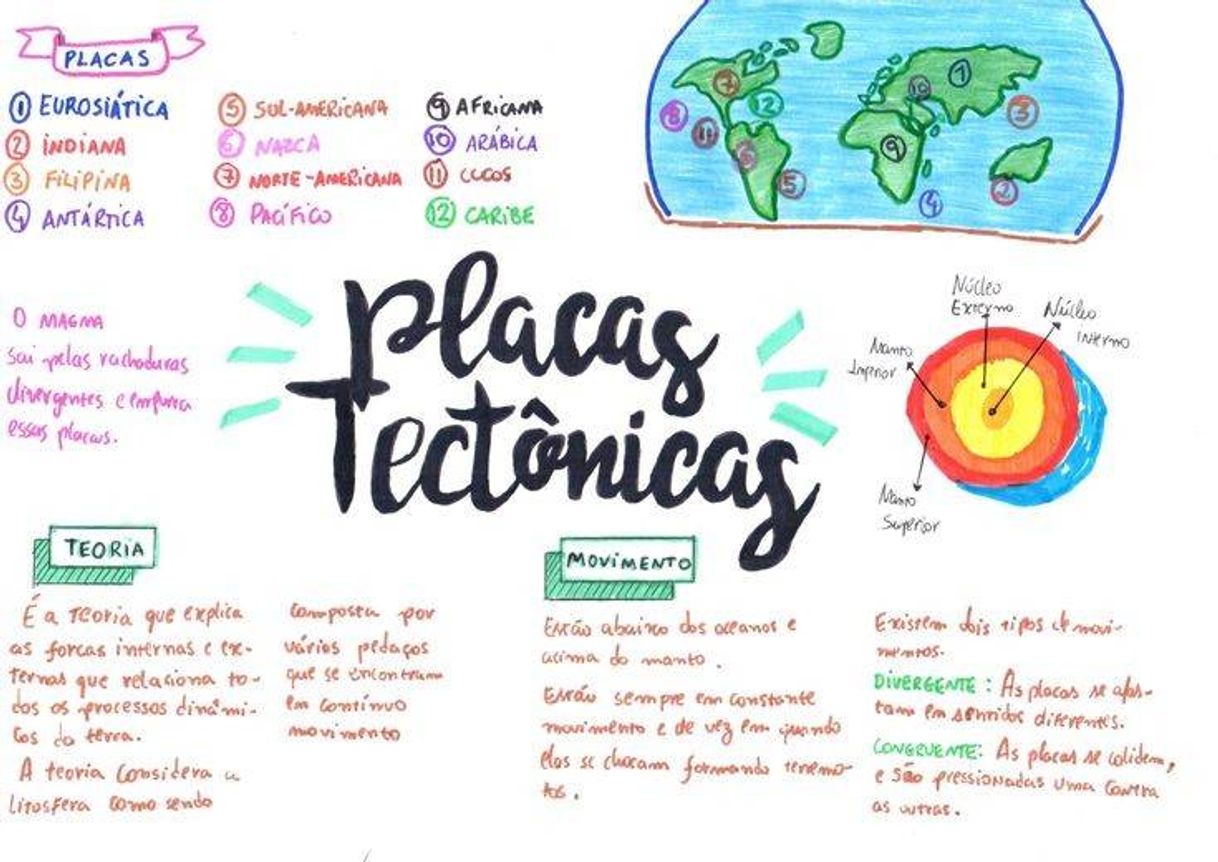 PLACAS
① EUROSIÁTICA
② INDIANA
③ FILIPINA
④ ANTÁRTICA
⑤ SUL-AMERICANA
⑥ NAZCA
⑦ NORTE-AMERICANA
⑧ PACÍFICO
⑨ AFRICANA
⑩ ARÁBICA
⑪ COCOS
⑫ CARIBE
⑦ ⑫ ⑧ ⑪ ⑥ ⑤ ① ⑩ ③ ⑨ ② ④
Placas
Tectônicas
O MAGMA
sai pelas rachaduras
divergentes e empurra
essas placas.
Núcleo
Externo
Núcleo
interno
Manto
Inferior
Manto
Superior
TEORIA
É a Teoria que explica
as forças internas e ex-
ternas que relaciona to-
dos os processos dinâmi-
cos da terra.
A teoria considera a
litosfera como sendo
composta por
vários pedaços
que se encontram
em contínuo
movimento
MOVIMENTO
Estão abaixo dos oceanos e
acima do manto.
Estão sempre em constante
movimento e de vez em quando
elas se chocam formando terremo-
tos.
Existem dois tipos de movi-
mentos.
DIVERGENTE: As placas se afas-
tam em sentidos diferentes.
CONGRUENTE: As placas se colidem,
e são pressionadas uma contra
as outras.